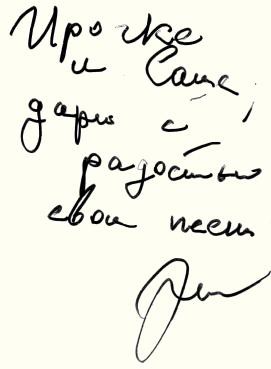 Ирочке
и Саше,
дарю с
радостью
свои песни